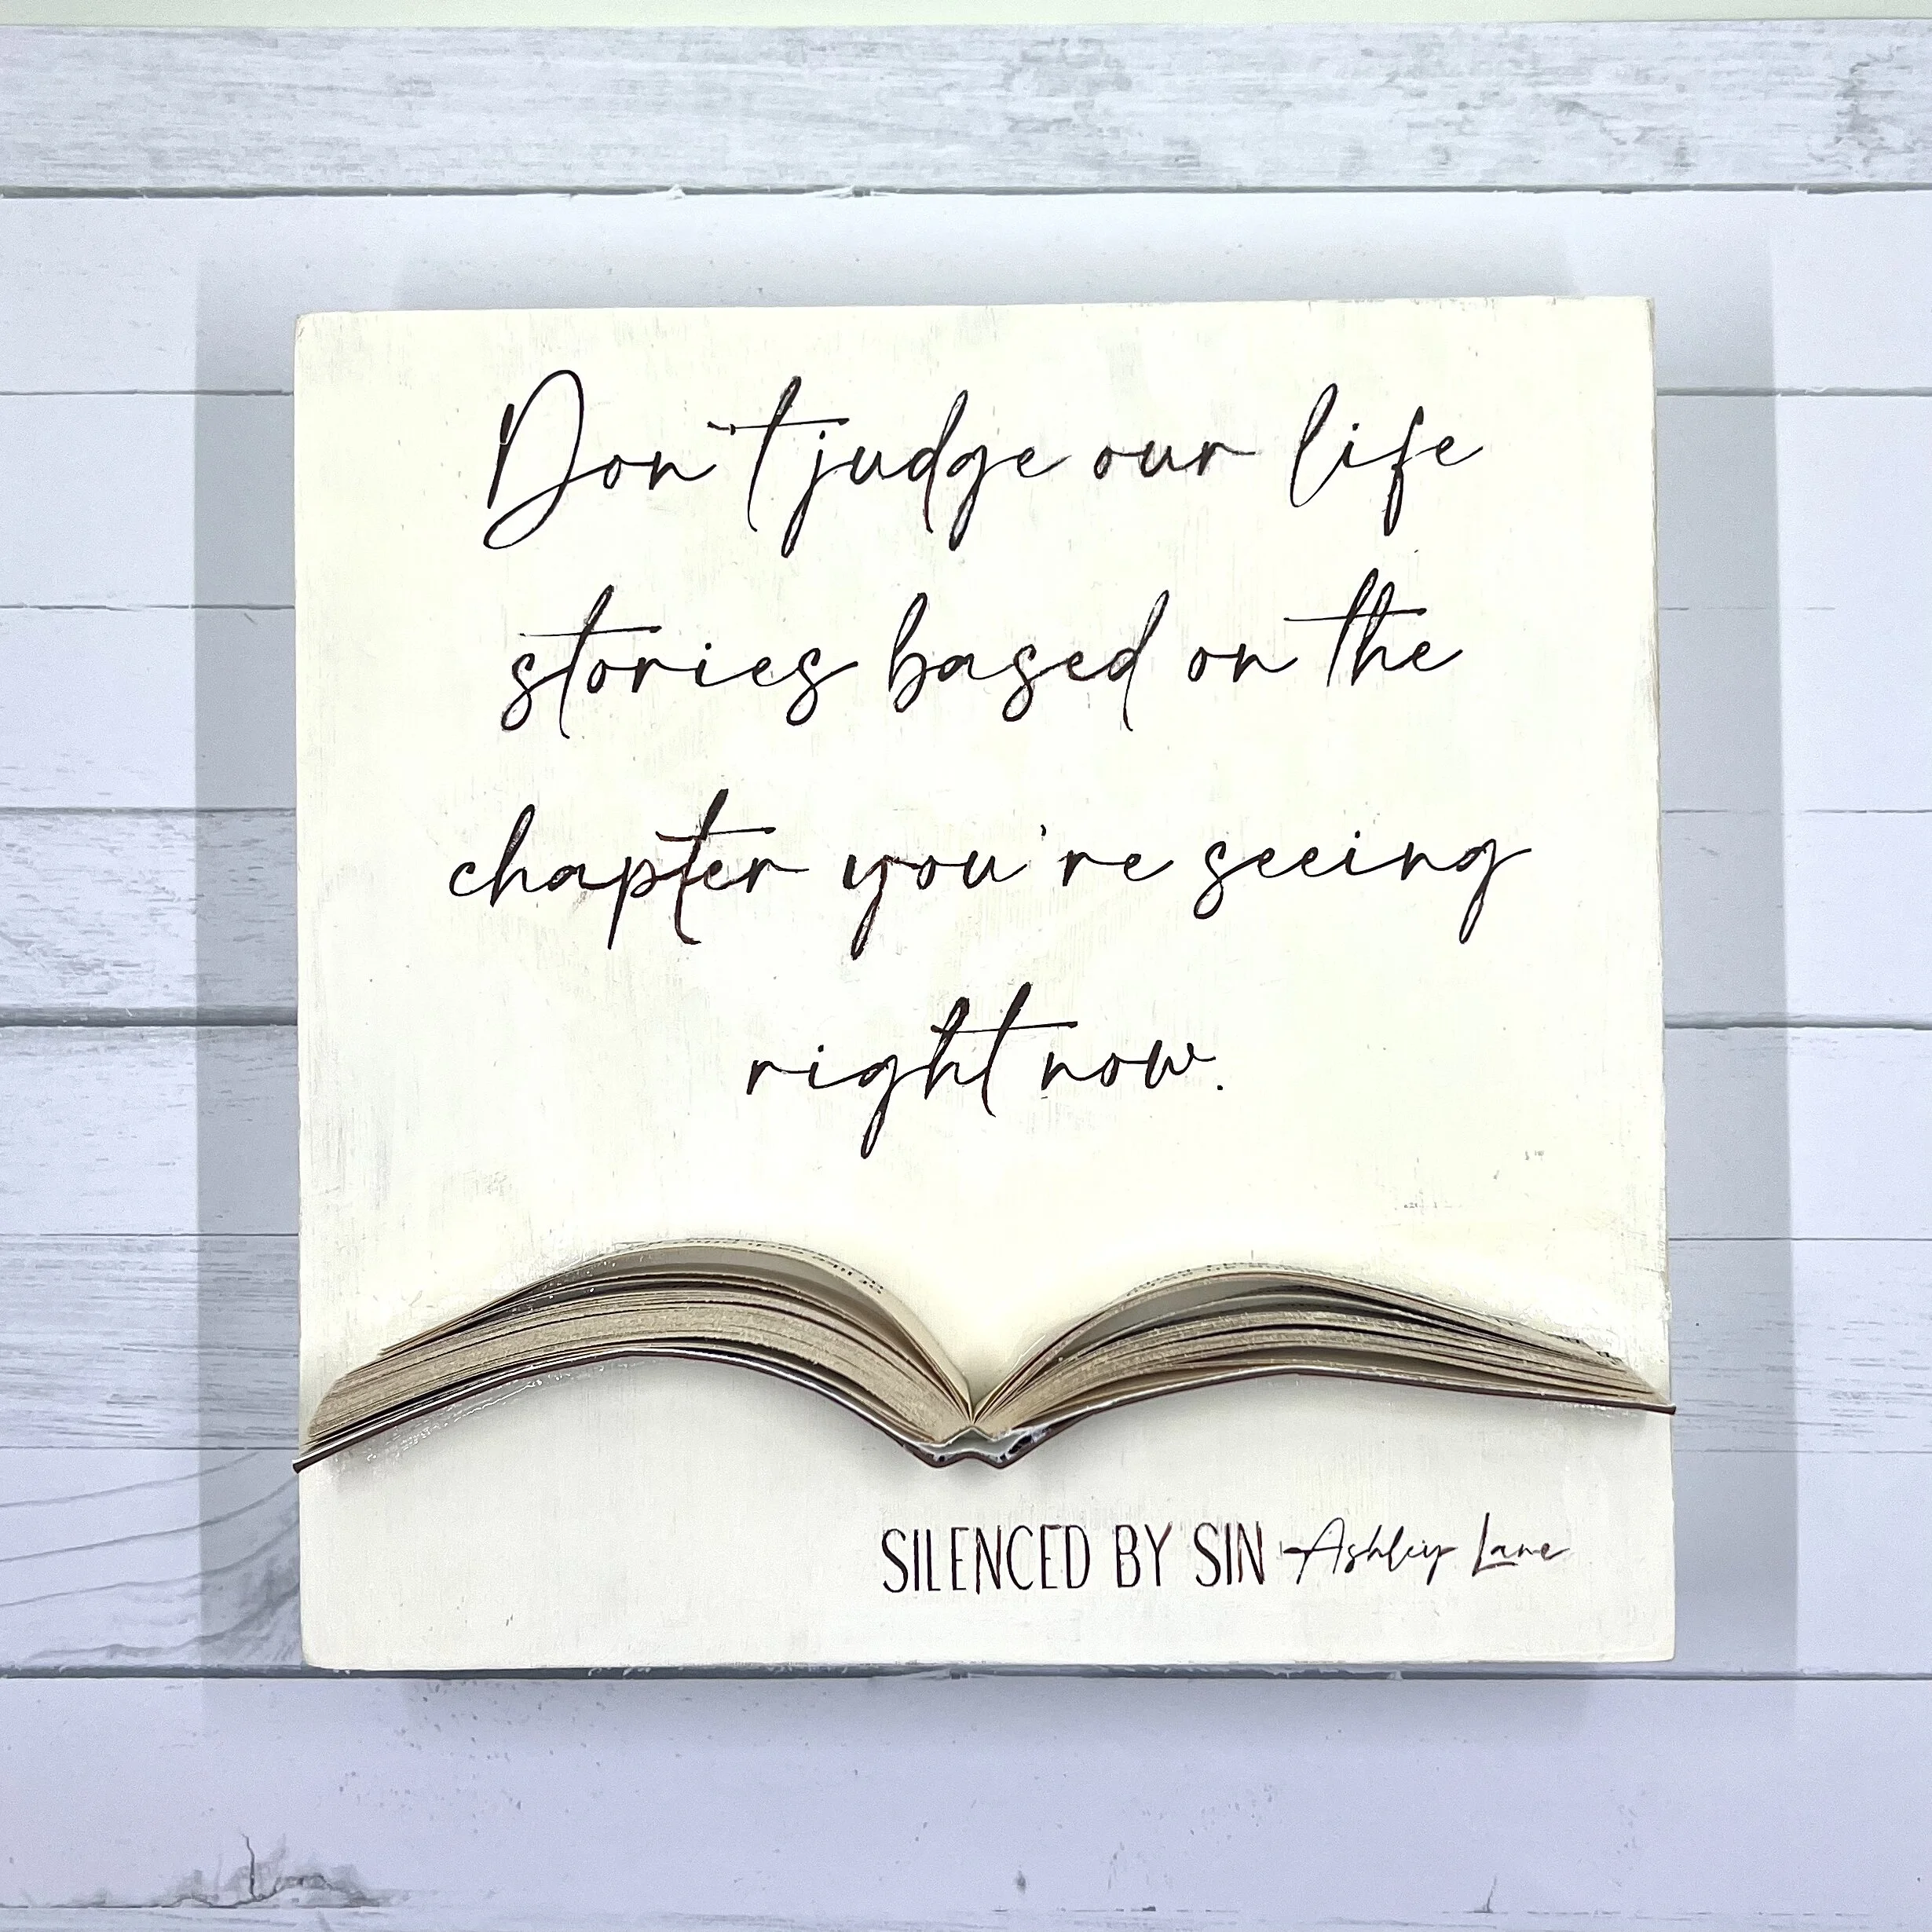 Don't judge our life
stories based on the
chapter you're seeing
right now.
SILENCED BY SIN -Ashley Lane